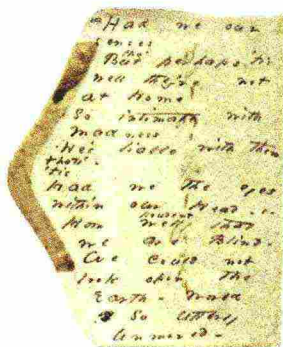 Had we our
senses
But perhaps 'tis
well they're not
at Home
So intimate with
Madness
He's liable with them
'tis
Had we the eyes
within our Head
How well that
we are Blind
We could not
look upon the
Earth
So utterly
Unmoved